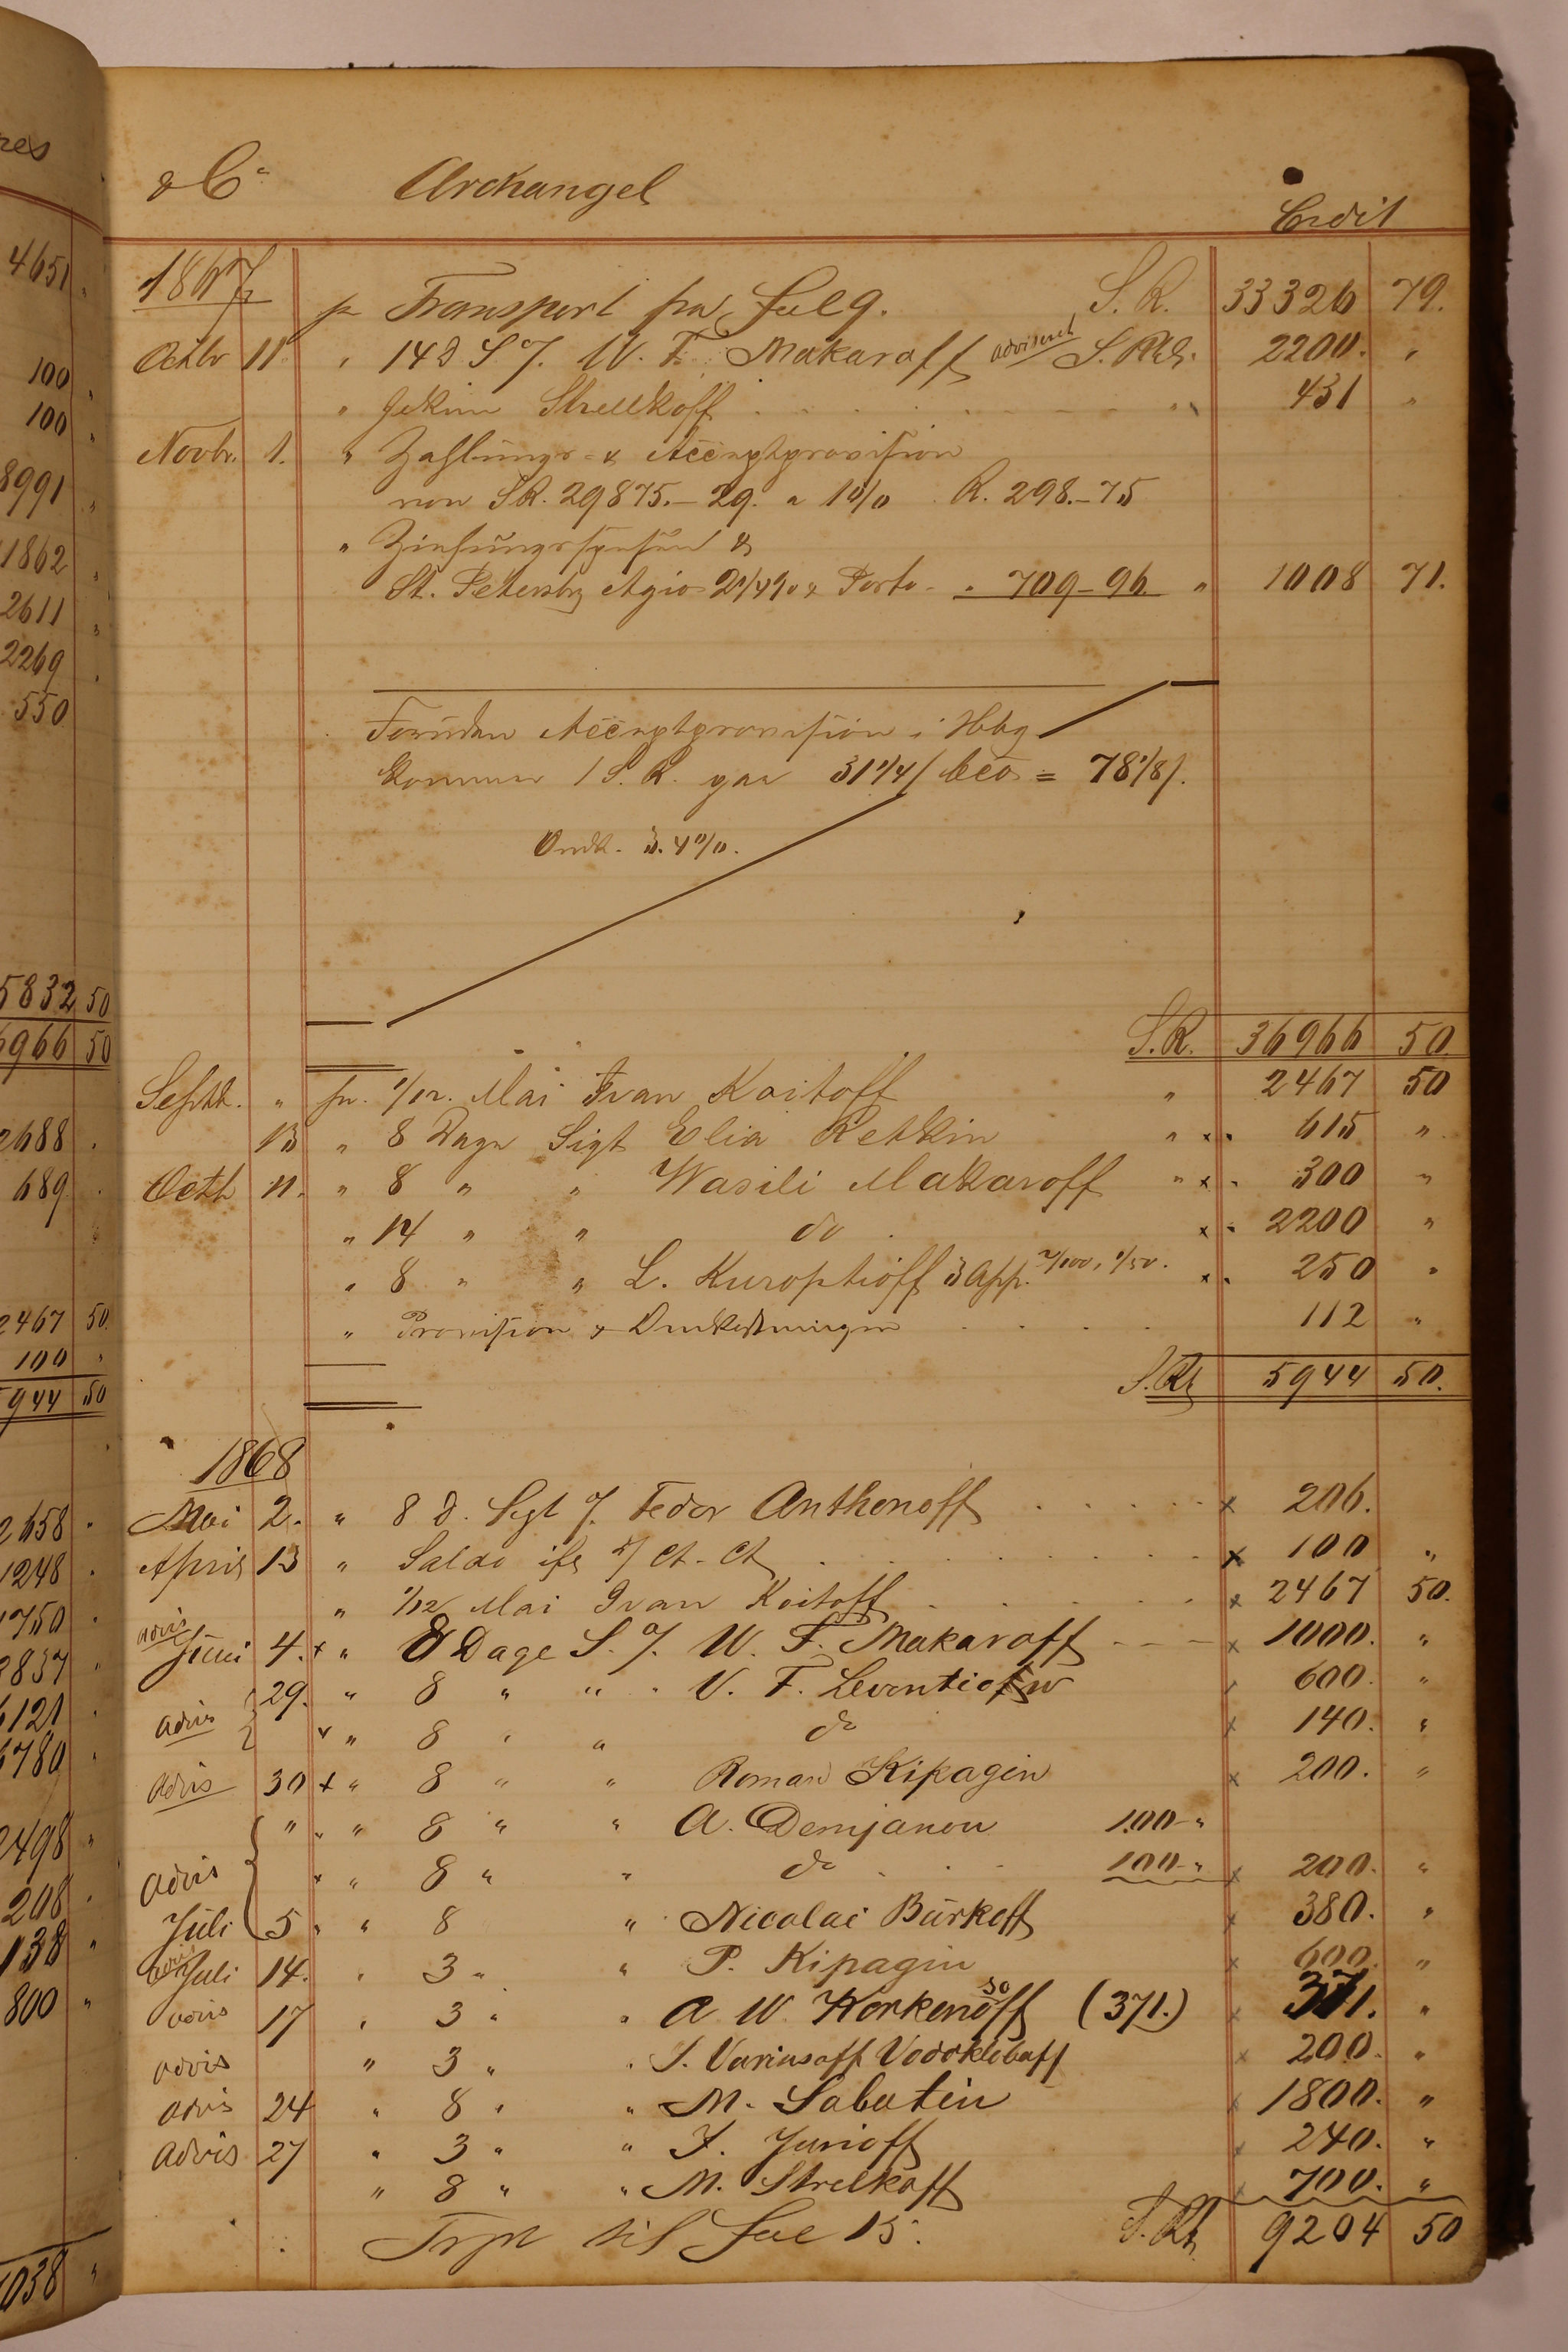 res
4651 "
100 "
100 "
8991 "
1862 "
2611 "
2269 "
550
5832 50
6966 50
2688 "
689 "
2467 50
100 "
5944 50
2658 "
1248 "
1750 "
3837 "
6121 "
6780 "
2498 "
208 "
138 "
800 "
038 "
& Co Archangel Credit
1867 pr Transport fra Fol 9. S. R. 33326 79.
Octbr 11 " 14 D S /. W. F. Makaroff adviseret S. Rbl. 2200. "
" Jekim Strelkoff " 431 "
Novbr. 1. " Zahlungs- & Acceptprovision
von SR. 29875.-29. a 1 0/0 R. 298.-75
" Ziehungsspesen &
St. Petersbg Agio 2 1/4 % & Porto " 709-96 " 1008 71.
Foruden Acceptprovision i Hbg
kommer 1 S. R. paa 31 1/4 / bco = 78 1/8 /.
Omk. 3.4 0/0.
S.R. 36966 50
Septbr. " pr. 1/12. Mai Ivan Koitoff " 2467 50
13 " 8 Dage Sigt Elia Retkin " x " 615 "
Octbr 11. " 8 " " Wasili Makaroff " x " 300 "
" 14 " " do x " 2200 "
" 8 " " L. Kuroptioff 3 App. 2/100, 1/50. x " 250 "
" Provision & Omkostninger 112 "
S.Rbl 5944 50.
1868
Mai 2. " 8 D. Sgt /. Fedor Anthonoff x 206.
April 13 " Saldo ifg /Ct. Ct x 100 "
" 1/12 Mai Ivan Koitoff x 2467 50.
advis
Juni 4. x " 8 Dage S. /. W. F. Makaroff x 1000. "
29. " 8 " " " V. F. Leventiefw 600. "
advis x " 8 " " do x 140. "
advis 30 x " 8 " " Roman Kipagin x 200. "
" " " 8 " " A. Demjanou 100 "
advis x " 8 " " do 100 " x 200. "
Juli 5 " " 8 " Nicolai Burkoff x 380. "
advis Juli 14. " 3 " " P. Kipagin x 600. "
advis 17 " 3 " " A W. Korkenosoff (371.) x 371. "
advis " 3 " " I. Variusoff Vodoklebaff x 200. "
advis 24 " 8 " " M. Sabatin x 1800. "
advis 27 " 3 " " F. Jurioff x 240. "
" 8 " " M. Strelkoff x 700. "
Trpt til Fol 15. S. Rbl. 9204 50